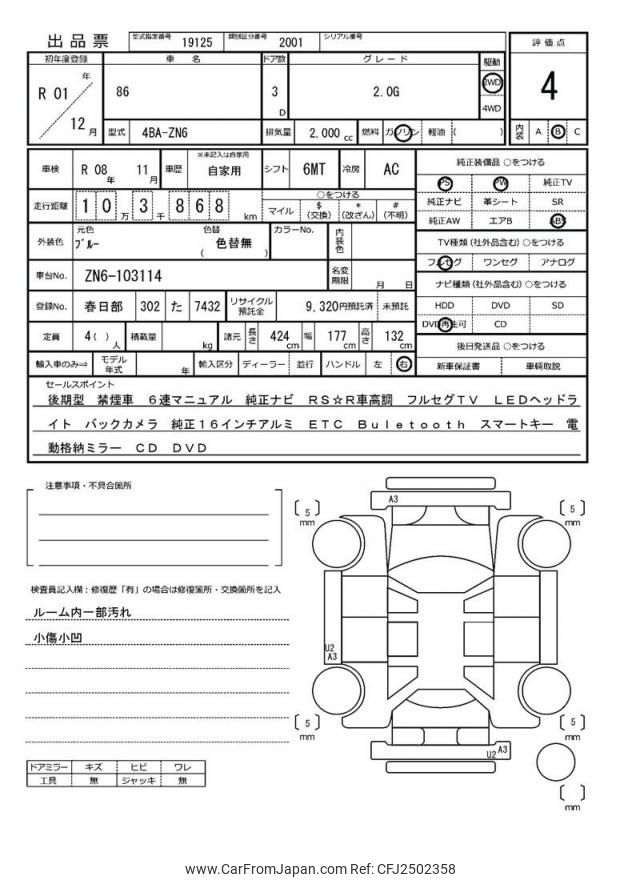 出品票
型式指定番号 19125 類別区分番号 2001 シリアル番号
初年度登録 車名 ドア数 グレード 駆動 評価点
R 01 年 12 月 86 3 D 2.0G 2WD 4WD 4
型式 4BA-ZN6 排気量 2,000 cc 燃料 ガソリン 軽油 ( ) 内装 A B C
車検 R 08 年 11 月 車歴 ※未記入は自家用 自家用 シフト 6MT 冷房 AC
純正装備品 ○をつける
PS PW 純正TV
純正ナビ 革シート SR
純正AW エアB ABS
走行距離 10万3千868 km
○をつける
マイル $(交換) *(改ざん) #(不明)
外装色 元色 ブルー 色替 色替無 ( ) カラーNo. 内装色
TV種類(社外品含む)○をつける
フルセグ ワンセグ アナログ
車台No. ZN6-103114 名変期限 月 日
ナビ種類(社外品含む)○をつける
HDD DVD SD
DVD再生可 CD
登録No. 春日部 302 た 7432 リサイクル預託金 9,320円預託済 未預託
定員 4( ) 人 積載量 kg 諸元 長さ 424 cm 幅 177 cm 高さ 132 cm
後日発送品 ○をつける
新車保証書 車輌取説
輸入車のみ⇒ モデル年式 年 輸入区分 ディーラー 並行 ハンドル 左 右
セールスポイント
後期型 禁煙車 6速マニュアル 純正ナビ RS☆R車高調 フルセグTV LEDヘッドラ
イト バックカメラ 純正16インチアルミ ETC Buletooth スマートキー 電
動格納ミラー CD DVD
注意事項・不具合箇所
検査員記入欄:修復歴「有」の場合は修復箇所・交換箇所を記入
ルーム内一部汚れ
小傷小凹
ドアミラー キズ ヒビ ワレ
工具 無 ジャッキ 無
A3
5 mm
5 mm
U2
A3
5 mm
5 mm
U2 A3
mm
www.CarFromJapan.com Ref: CFJ2502358